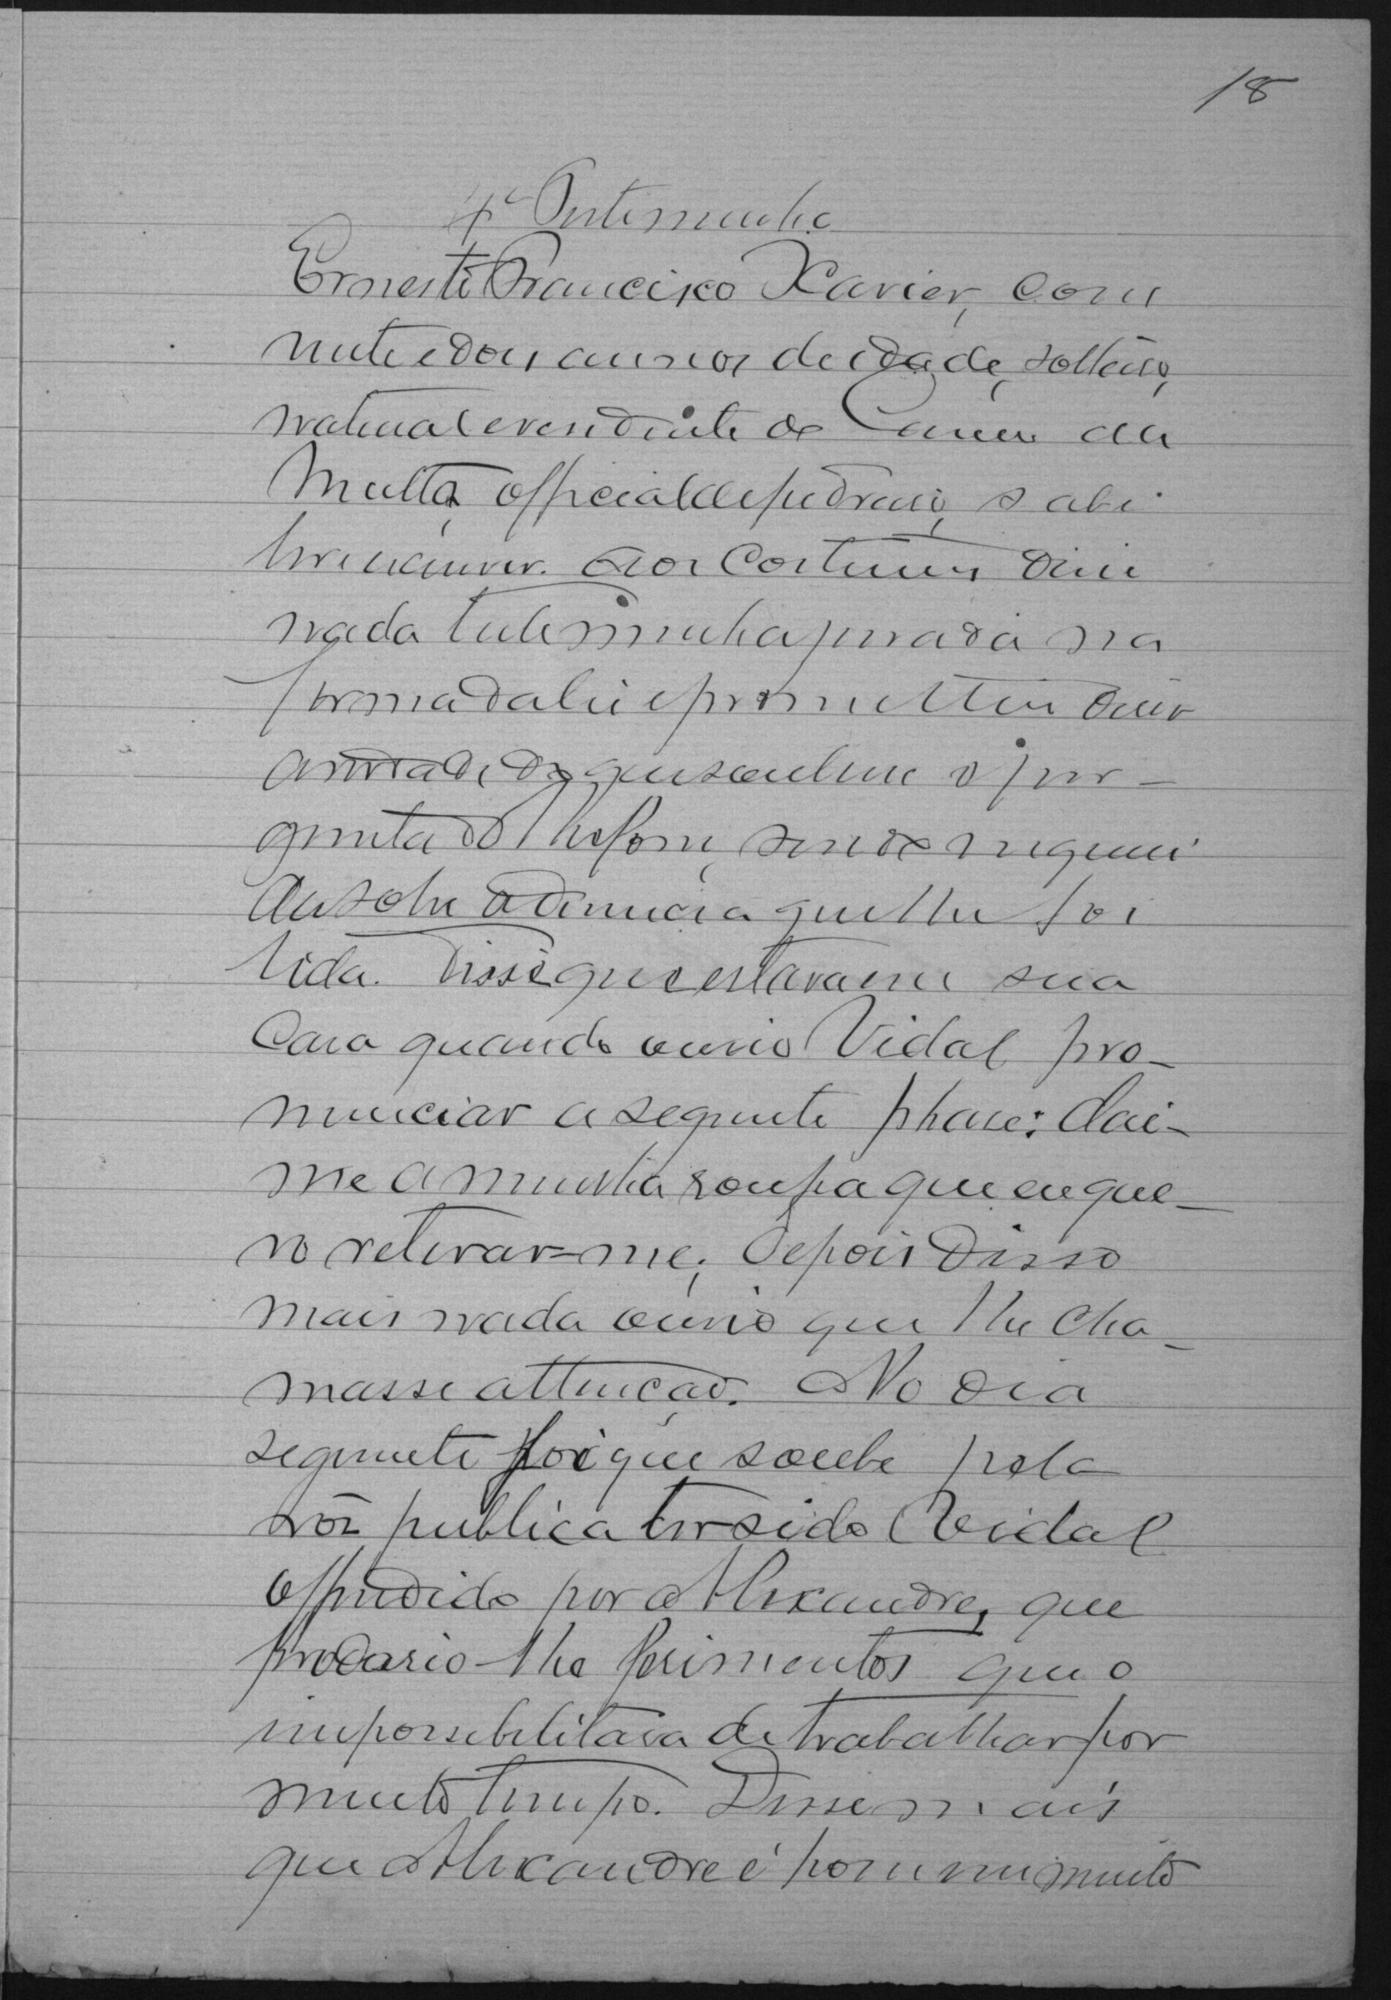 18
4ª Testemunha
Ernesto Francisco Xavier, com
vinte e dois annos de idade, solteiro,
natural e residente de Canna da
Matta, official de pedreiro, sabe
ler e escrever. Aos costumes disse
nada testemunha jurada na
forma da lei e prometteu dizer
a verdade do que soubesse e per-
guntado lhe fosse, sendo inqueri
da sobre a denuncia que lhe foi
lida. Disse que estava em sua
casa quando ouvio Vidal pro-
nunciar a seguinte phase: dai-
me a minha roupa que eu que-
ro retirar-me; depois disso
mais nada ouvio que lhe cha-
masse attenção. No dia
seguinte foi que soube pela
vóz publica ter sido Vidal
offendido por Alexandre, que
produsio-lhe ferimentos que o
impossibilitava de trabalhar por
muito tempo. Disse mais
que Alexandre é homem muito